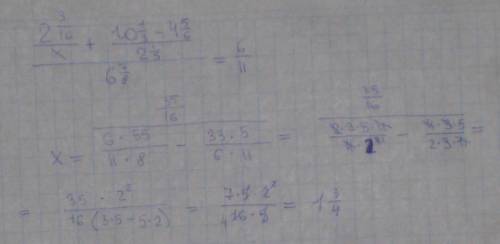 (2 3/16 / x + (10 1/3 - 4 5/6) / 2 1/3) / 6 7/8 = 6/11
x = (35/16) / (6·55 / 11·8 - 33·5 / 6·11) = (35/16) / (·3·5· / 2 - ·3·5 / 2·3·) =
= 35·2² / 16(3·5-5·2) = 7·5·2² / 4 16·5 = 1 3/4